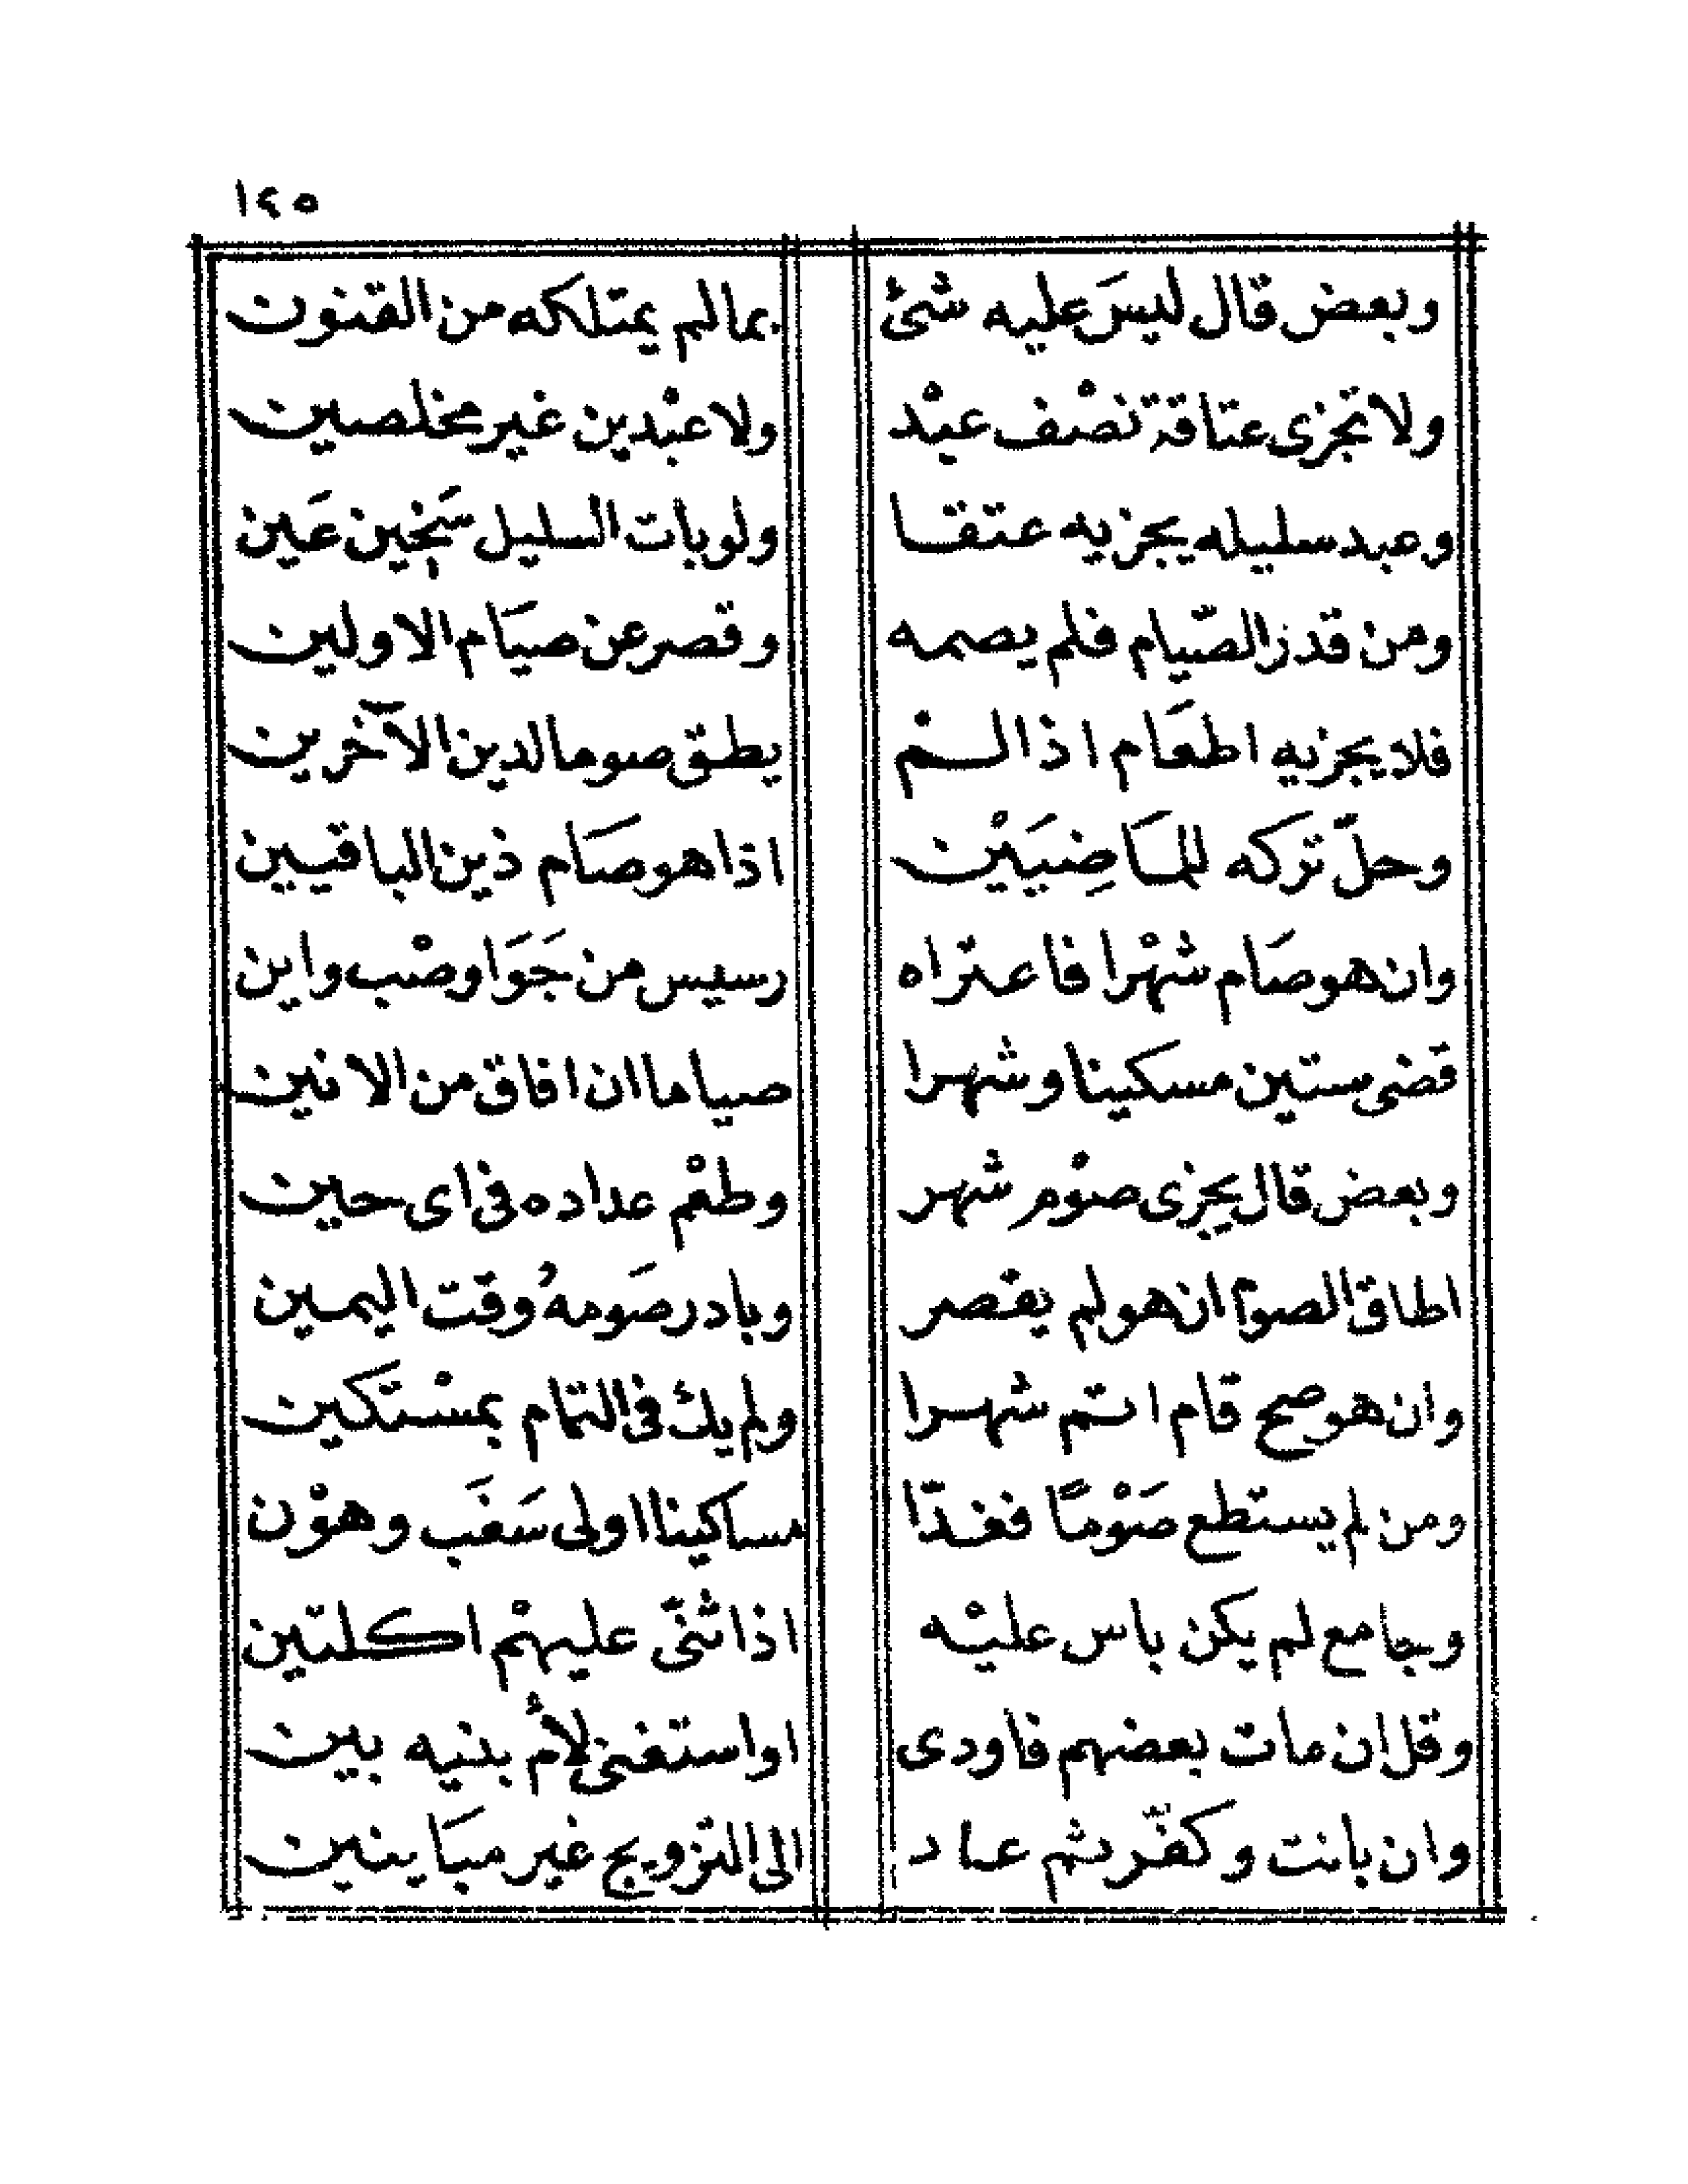 ١٤٥
وبعض قال ليسَ عليه شئ بمالم يمتلكه من القنون
ولا تجزى عتاقة نصْف عبْد ولا عبْدين غير مخلصين
وعبد سليله يجزيه عتقا ولوبات السليل سَخين عَين
ومن قدر الصّيام فلم يصمه وقصر عن صيَام الاولين
فلا يجزيه اطعَام اذا لم يطق صوما لدين الآخرين
وحلّ تركه للمَاضِيَيْن اذا هو صَام ذين الباقيين
وان هو صَام شهْرا فاعتراه رسيس من جَوَا وصْب واين
قضى ستين مسكينا وشهرا صياما ان افاق من الانين
وبعض قال يجزى صوْم شهر وطعْم عداده فى اى حين
اطاق الصوم ان هو لم يقصر وبادر صَومهُ وقت اليمين
وان هو صح قام اتم شهرا ولم يك فى التمام بمسْتَكين
ومن لم يستطع صَوْمًا فغدّا مساكينا اولى سَغَب وهوْن
وجامع لم يكن باس عليْه اذا ثنّى عليهْم اكلتين
وقل ان مات بعضهم فاودى او استغنى لأم بنيه بين
وان بانت وكفّر ثم عاد الى التزويج غير مبَاينين